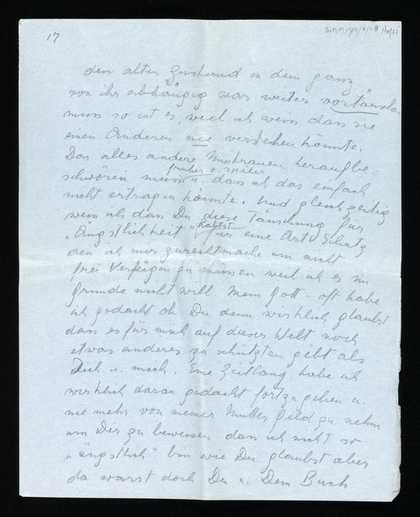 17
den alten Zustand in dem ganz
von ihr abhängig war weiter vortäusche
muss so ist es, weil ich weiss dass sie
einen Anderen nie verstehen könnte.
Das alles andere Misstrauen heraufbe-
schwören müsste
früher o. später
dass ich das einfach
nicht ertragen könnte. Und gleichzeitig
weiss ich dass Du diese Täuschung für
"Ängstlichkeit"
hältst
für eine Art Schutz
den ich mir zurechtmache um nicht
frei verfügen zu müssen weil ich es im
Grunde nicht will. Mein Gott - oft habe
ich gedacht ob Du denn wirklich glaubst
dass es für mich auf dieser Welt noch
etwas anderes zu schützen gibt als
Dich u. mich. Eine Zeitlang habe ich
wirklich daran gedacht fortzugehen u.
nie mehr von meiner Mutter Geld zu nehmen
um Dir zu beweisen dass ich nicht so
"ängstlich" bin wie Du glaubst aber
da warst doch Du u. Dein Buch